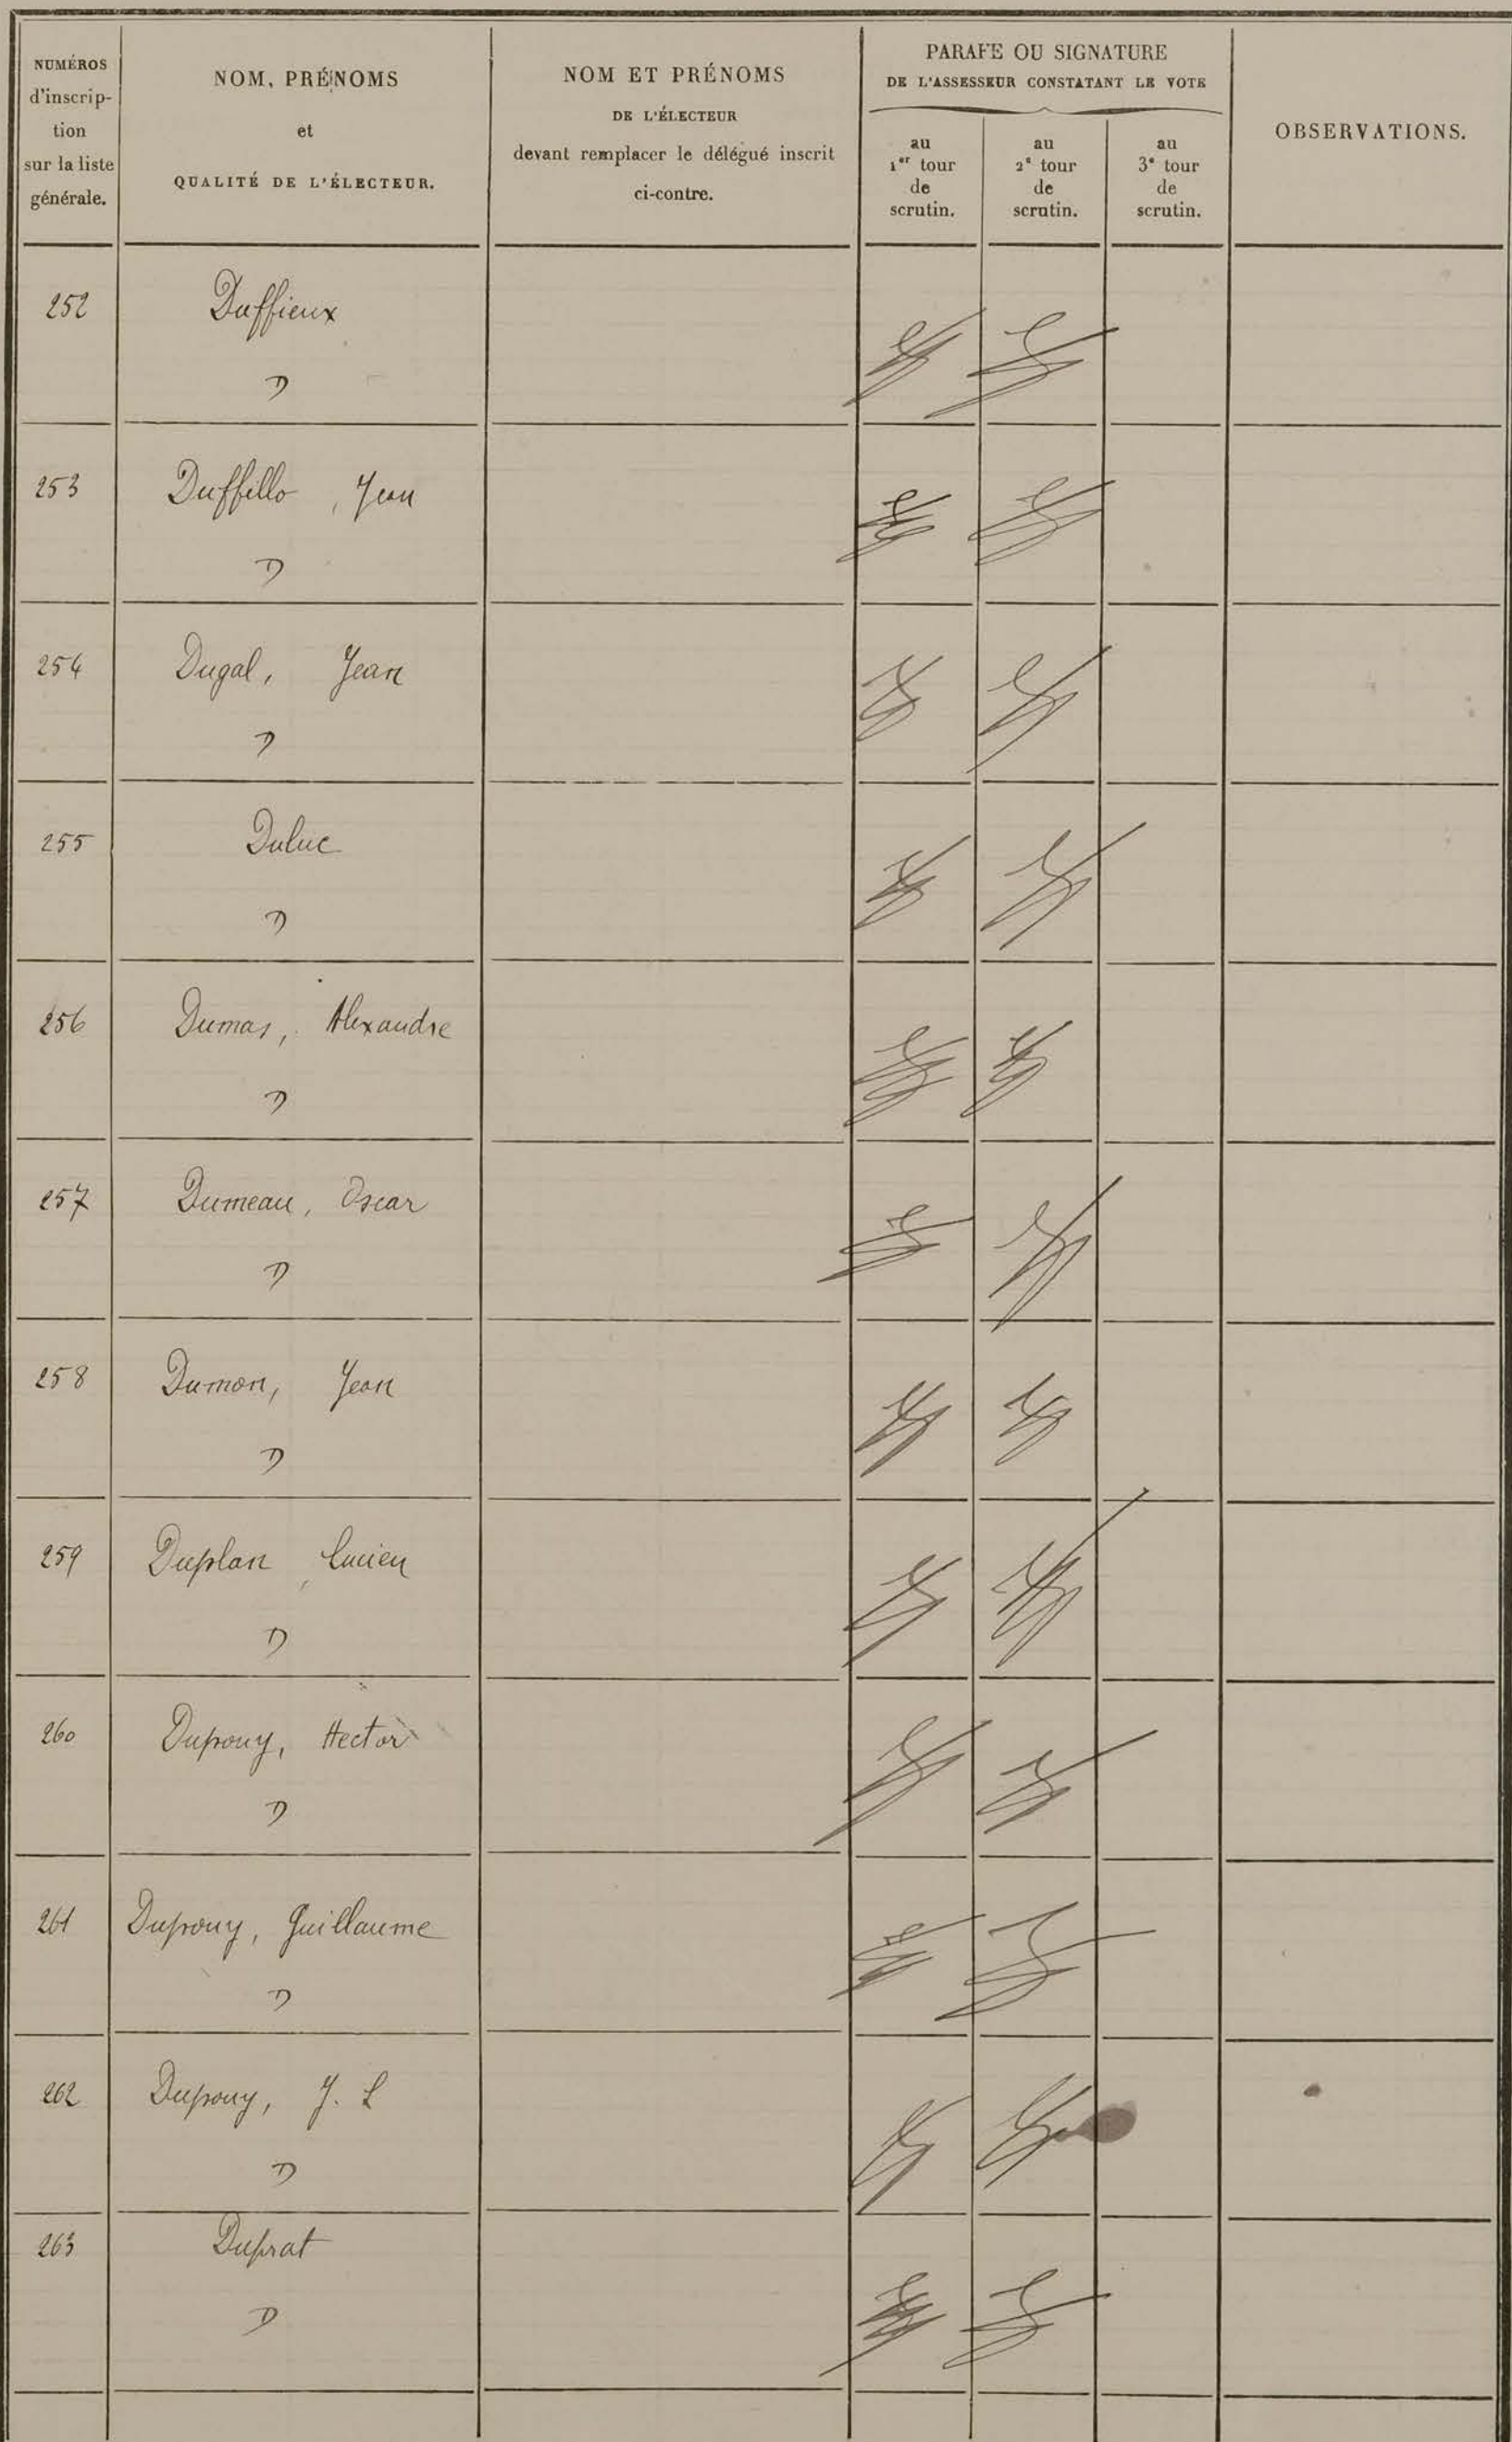 NUMÉROS
d'inscrip-
tion
sur la liste
générale.
NOM, PRÉNOMS
et
QUALITÉ DE L'ÉLECTEUR.
NOM ET PRÉNOMS
DE L'ÉLECTEUR
devant remplacer le délégué inscrit
ci-contre.
PARAFE OU SIGNATURE
DE L'ASSESSEUR CONSTATANT LE VOTE
au
1er tour
de
scrutin.
au
2e tour
de
scrutin.
au
3e tour
de
scrutin.
OBSERVATIONS.
252 Duffieux
D
253 Duffillo, Jean
D
254 Dugal, Jean
D
255 Duluc
D
256 Dumas, Alexandre
D
257 Dumeau, Oscar
D
258 Dumon, Jean
D
259 Duplan, Lucien
D
260 Dupouy, Hector
D
261 Dupouy, Guillaume
D
262 Dupouy, J. L
D
263 Duprat
D